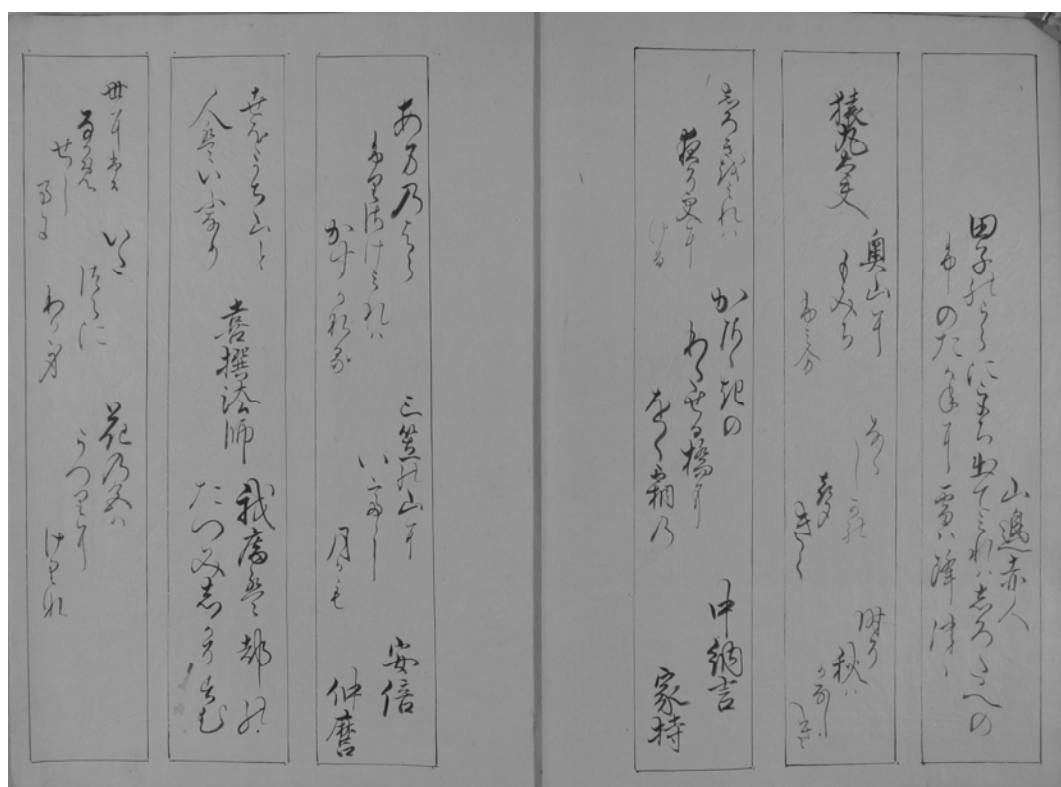 山邊赤人
田子のうらに宇ち出てミれハ志ろたへの
ふしのたかねに雪ハ降つゝ
猿丸太夫
奥山に
もみち
ふみ分
なく
しかの
聲
きく
時そ
秋ハ
かなしき
かさゝきの
わたせる橋に
をく霜の
志ろきを見れハ
夜そ更に
ける
中納言
家持
あまの原
ふりさけミれハ
かすかなる
三笠の山に
いてし
月かも
安倍
仲麿
我庵は都の
たつみ志かすむ
世をうち山と
人はいふなり
喜撰法師
花の色ハ
うつりに
けりな
いた
つらに
わか身
世にふる
なかめ
せし
まに